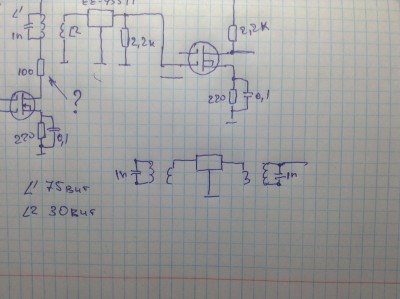 L1
1n
L2
2,2к
2,2к
100
?
220
0,1
220
0,1
1n
1n
L1 75вит
L2 30вит